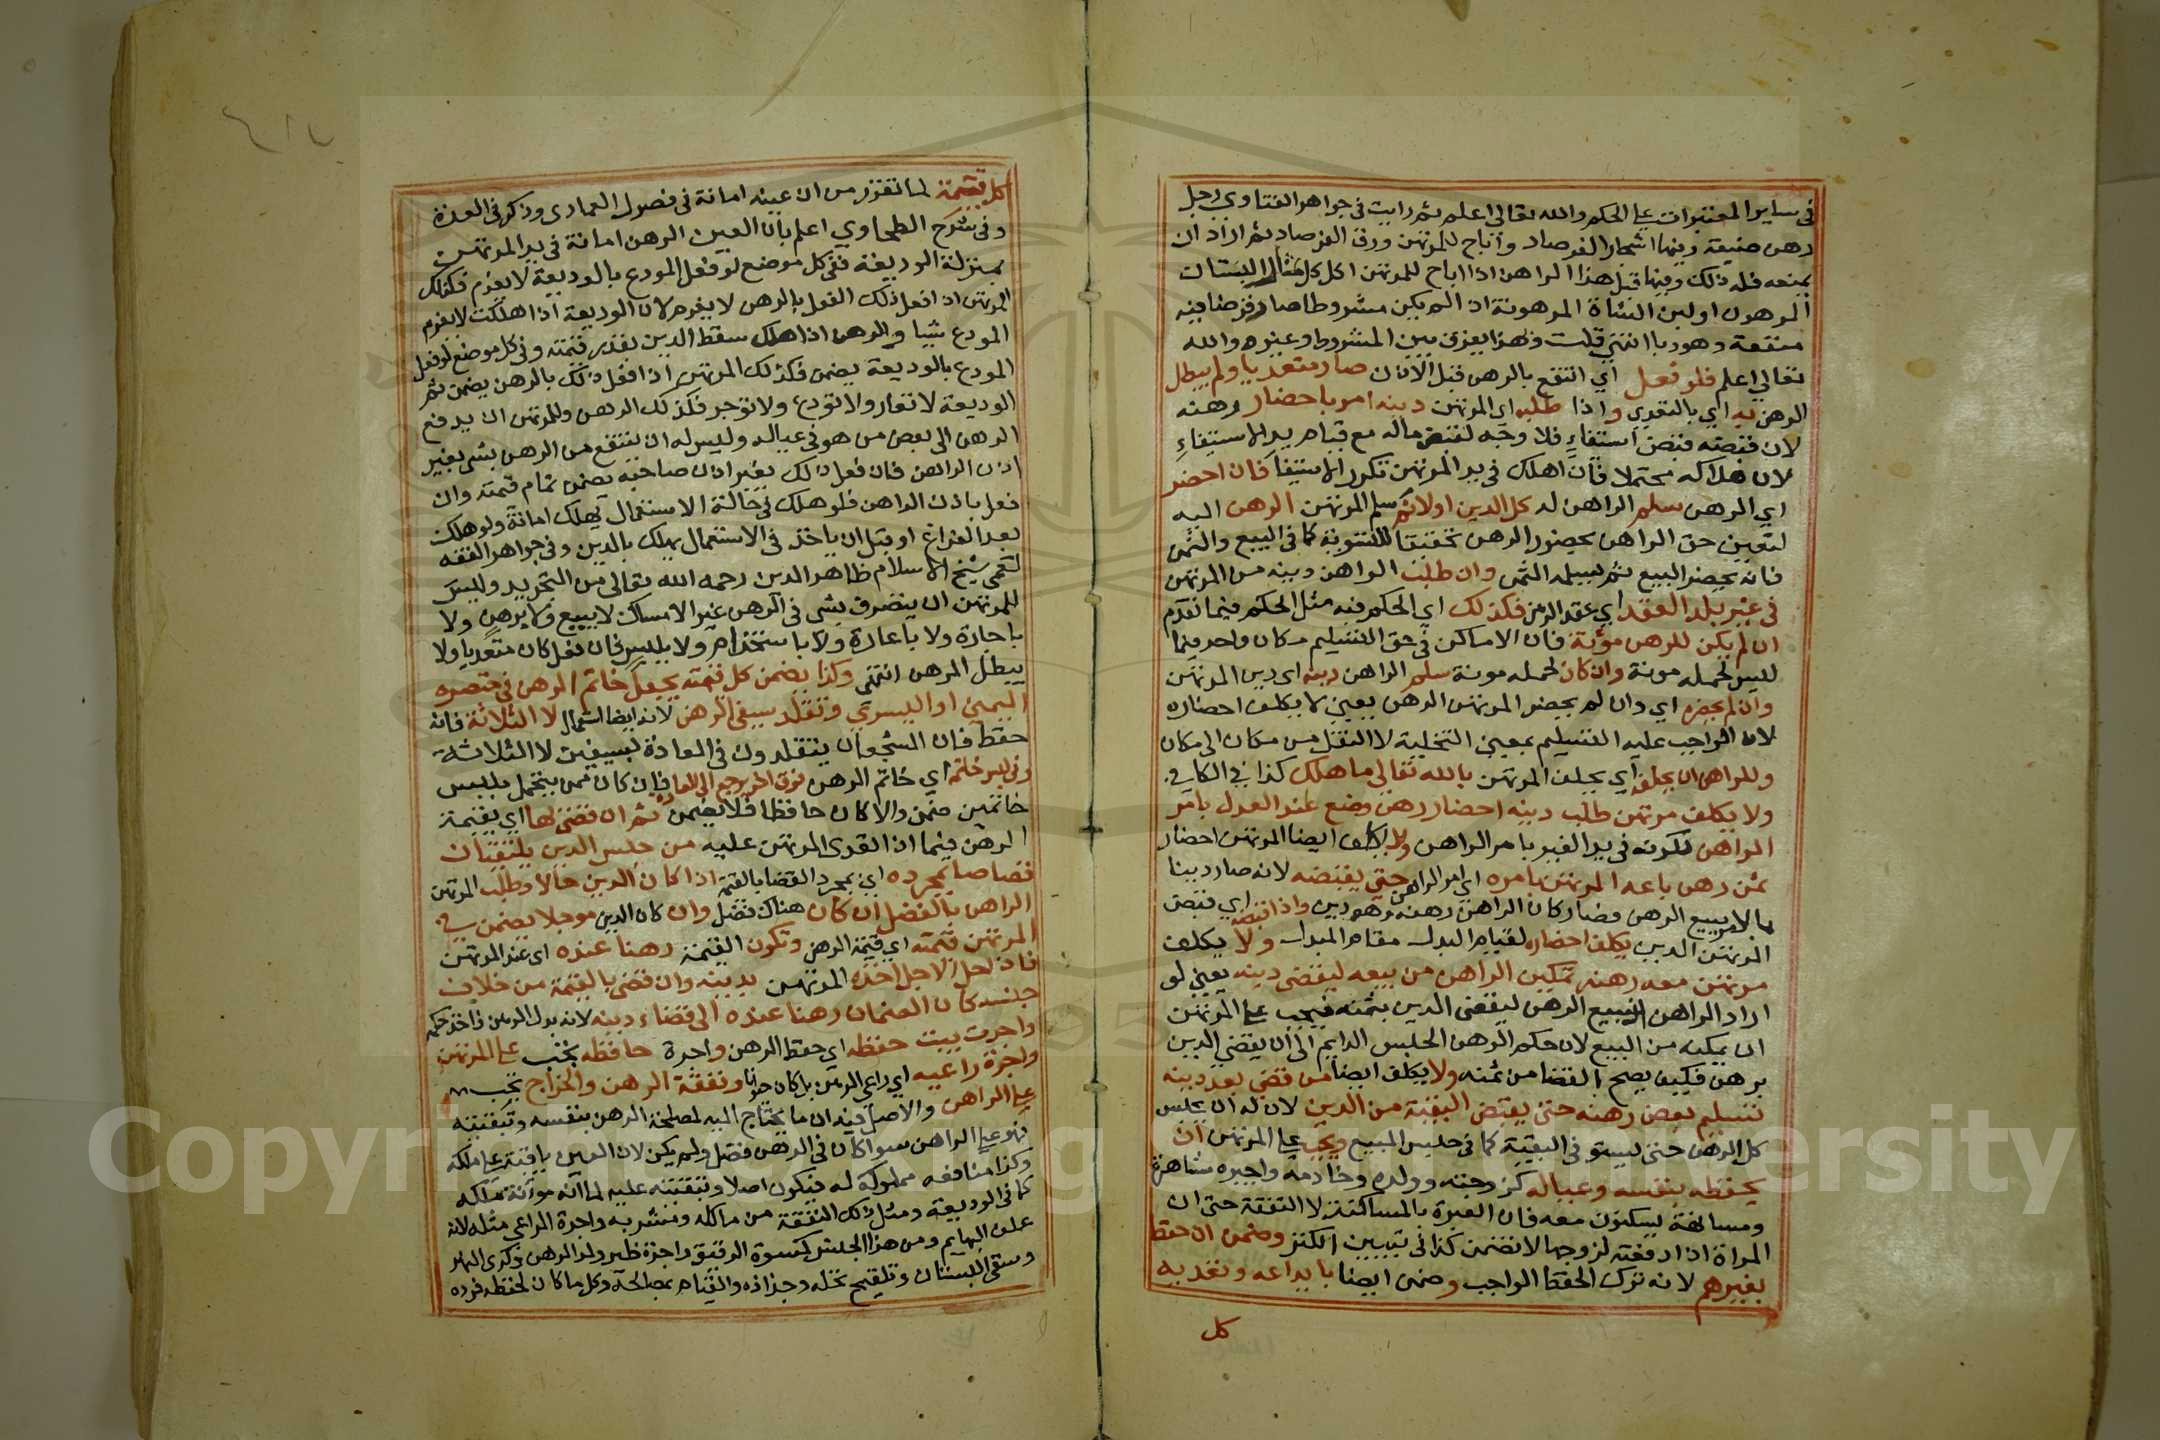 في ساير المعتبرات علي الحكم والله تعالى اعلم ثم رايت في جواهر الفتاوي رجل
رهن ضيعة وفيها اشجار الفرصاد واباح للمرتهن ورق الفرصاد ثم اراد ان
يمنعه فله ذلك وفيها قبل هذا الراهن اذا اباح للمرتهن اكل كل ثمار البستان
المرهون او لبن الشاة المرهونة اذا لم يكن مشروطا صار قرضا فيه
منفعة وهو ربا انتهى قلت وهذا يفرق بين المشروط وغيره والله
تعالي اعلم فلو فعل اي انتفع بالرهن قبل الاذن صار متعديا ولم يبطل
الرهن به اي بالتعدي واذا طلب اي المرتهن دينه امر باحضار رهنه
لان قبضه قبض استيفاء فلا وجه لقبض ماله مع قيام يد الاستيفاء
لان هلاكه محتملا فاذا هلك في يد المرتهن تكرر الاستيفا فان احضر
اي الرهن سلم الراهن له كل الدين اولا ثم سلم المرتهن الرهن اليه
لتعين حق الراهن بحضور الرهن تحقيقا للتسوية كما في البيع والثمن
فانه يحضر المبيع ثم يسلم الثمن وان طلب الراهن دينه من المرتهن
في غير بلد العقد اي عقد الرهن فكذلك اي الحكم فيه مثل الحكم فيما تقدم
ان لم يكن للرهن مؤنة فان الاماكن في حق التسليم مكان واحد فيما
ليس لحمله مونة وان كان لحمله مونة سلم الراهن دينه اي دين المرتهن
وان لم يحضره اي وان لم يحضر المرتهن الرهن يعني لا يكلف احضاره
لان الواجب عليه التسليم بمعني التخلية لا النقل من مكان الى مكان
وللراهن ان يحلفه اي يحلف المرتهن بالله تعالي ما هلك كذا في الكافي
ولا يكلف مرتهن طلب دينه احضار رهن وضع عند العدل بامر
الراهن لكونه في يد الغير بامر الراهن ولا يكلف ايضا المرتهن احضار
ثمن رهن باعه المرتهن بامره اي امر الراهن حتي يقبضه لانه صار دينا
بالامر ببيع الرهن فصار كان الراهن رهنه وهو دين واذا قبضه اي قبض
المرتهن الدين يكلف احضاره لقيام البدل مقام المبدل ولا يكلف
مرتهن معه رهنه تمكين الراهن من بيعه ليقضي دينه يعني لو
اراد الراهن ان يبيع الرهن ليقضي الدين بثمنه فيجب علي المرتهن
ان يمكنه من البيع لان حكم الرهن الحبس الدايم الى ان يقضي الدين
برهن فكيف يصح القضا من ثمنه ولا يكلف ايضا من قضي بعد دينه
تسليم بعض رهنه حتى يقبض البقية من الدين لان له ان يحبس
كل الرهن حتى يستوفي البقية كما في حبس المبيع ويجب علي المرتهن ان
يحفظه بنفسه وعياله كزوجته وولده وخادمه واجيره مشاهرة
ومسانهة يسكنون معه فان العبرة بالمساكنة لا النفقة حتى ان
المراة اذا دفعته لزوجها لا تضمن كذا في تبيين الكنز وضمن ان حفظ
بغيرهم لانه ترك الحفظ الواجب وضمن ايضا بايداعه وتعديه
كل
كل قيمته لما تقرر من ان عينه امانة في فصول العمادي وذكر في العدة
وفي شرح الطحاوي اعلم بان العين الرهن امانة في يد المرتهن
بمنزلة الوديعة ففي كل موضع لو فعل المودع بالوديعة لا يغرم فكذلك
المرتهن اذا فعل ذلك الفعل بالرهن لا يغرم لان الوديعة اذا هلكت لا يغرم
المودع شيا والرهن اذا هلك سقط الدين بقدر قيمته وفي كل موضع لو فعل
المودع بالوديعة يضمن فكذلك المرتهن اذا فعل ذلك بالرهن يضمن ثم
الوديعة لا تعار ولا تودع ولا توجر فكذلك الرهن وللمرتهن ان يدفع
الرهن الى بعض من هو في عياله وليس له ان ينتفع من الرهن بشي بغير
اذن الراهن فان فعل ذلك بغير اذن صاحبه يضمن تمام قيمته وان
فعل باذن الراهن فلو هلك في حالة الاستعمال يهلك امانة ولو هلك
بعد الفراغ او قبل ان ياخذ في الاستعمال يهلك بالدين وفي جواهر الفقه
لعمي شيخ الاسلام ظاهر الدين رحمه الله تعالى من التجريد وليس
للمرتهن ان يتصرف بشي في الرهن غير الامساك لا يبيع ولا يرهن ولا
باجارة ولا باعارة ولا باستخدام ولا بلبس فان فعل كان متعديا ولا
يبطل الرهن انتهي وكذا يضمن كل قيمته بجعل خاتم الرهن في خنصره
اليمنى او اليسرى وتقلد سيفي الرهن لانه ايضا استعمال لا الثلاثة فانه
حفظ فان الشجعان يتقلدون في العادة بسيفين لا الثلاثة
وفي لبس خاتمه اي خاتم الرهن فوق اخر يرجع الى العادة فان كان ممن يتجمل بلبس
خاتمين ضمن والا كان حافظا فلا يضمن ثم ان قضى بها اي بقيمة
الرهن فيما اذا تعدى المرتهن عليه من جنس الدين يلتقيان
قصاصا بمجرده اي بمجرد القضا بالقيمة اذا كان الدين حالا وطلب المرتهن
الراهن بالفضل ان كان هناك فضل وان كان الدين موجلا يضمن
المرتهن قيمته اي قيمة الرهن وتكون القيمة رهنا عنده اي عند المرتهن
فاذا حل الاجل اخذه المرتهن بدينه وان قضى بالقيمة من خلاف
جنسه كان الضمان رهنا عنده الى قضاء دينه لانه بدل الرهن فاخذ حكمه
واجرت بيت حفظه اي حفظ الرهن واجرة حافظه تجب علي المرتهن
واجرة راعيه اي راعي الرهن بان كان حيوانا ونفقة الرهن والخراج تجب
علي الراهن والاصل فيه ان ما يحتاج اليه لمصلحة الرهن بنفسه وتبقيته
فهو علي الراهن سوا كان في الرهن فضل ولم يكن لان العين باقية علي ملكه
وكذا منافعه مملوكة له فيكون اصلا وتبقيته عليه لما انه مؤنة ملكه
كما في الوديعة ومثل ذلك النفقة من ماكله ومشربه واجرة الراعي مثله لانه
علف البهايم ومن هذا الجنس كسوة الرقيق واجرة ظير ولد الرهن وكري النهر
وسقي البستان وتلقيح نخله وجذاذه والقيام بمصالحه وكل ما كان لحفظه فرده